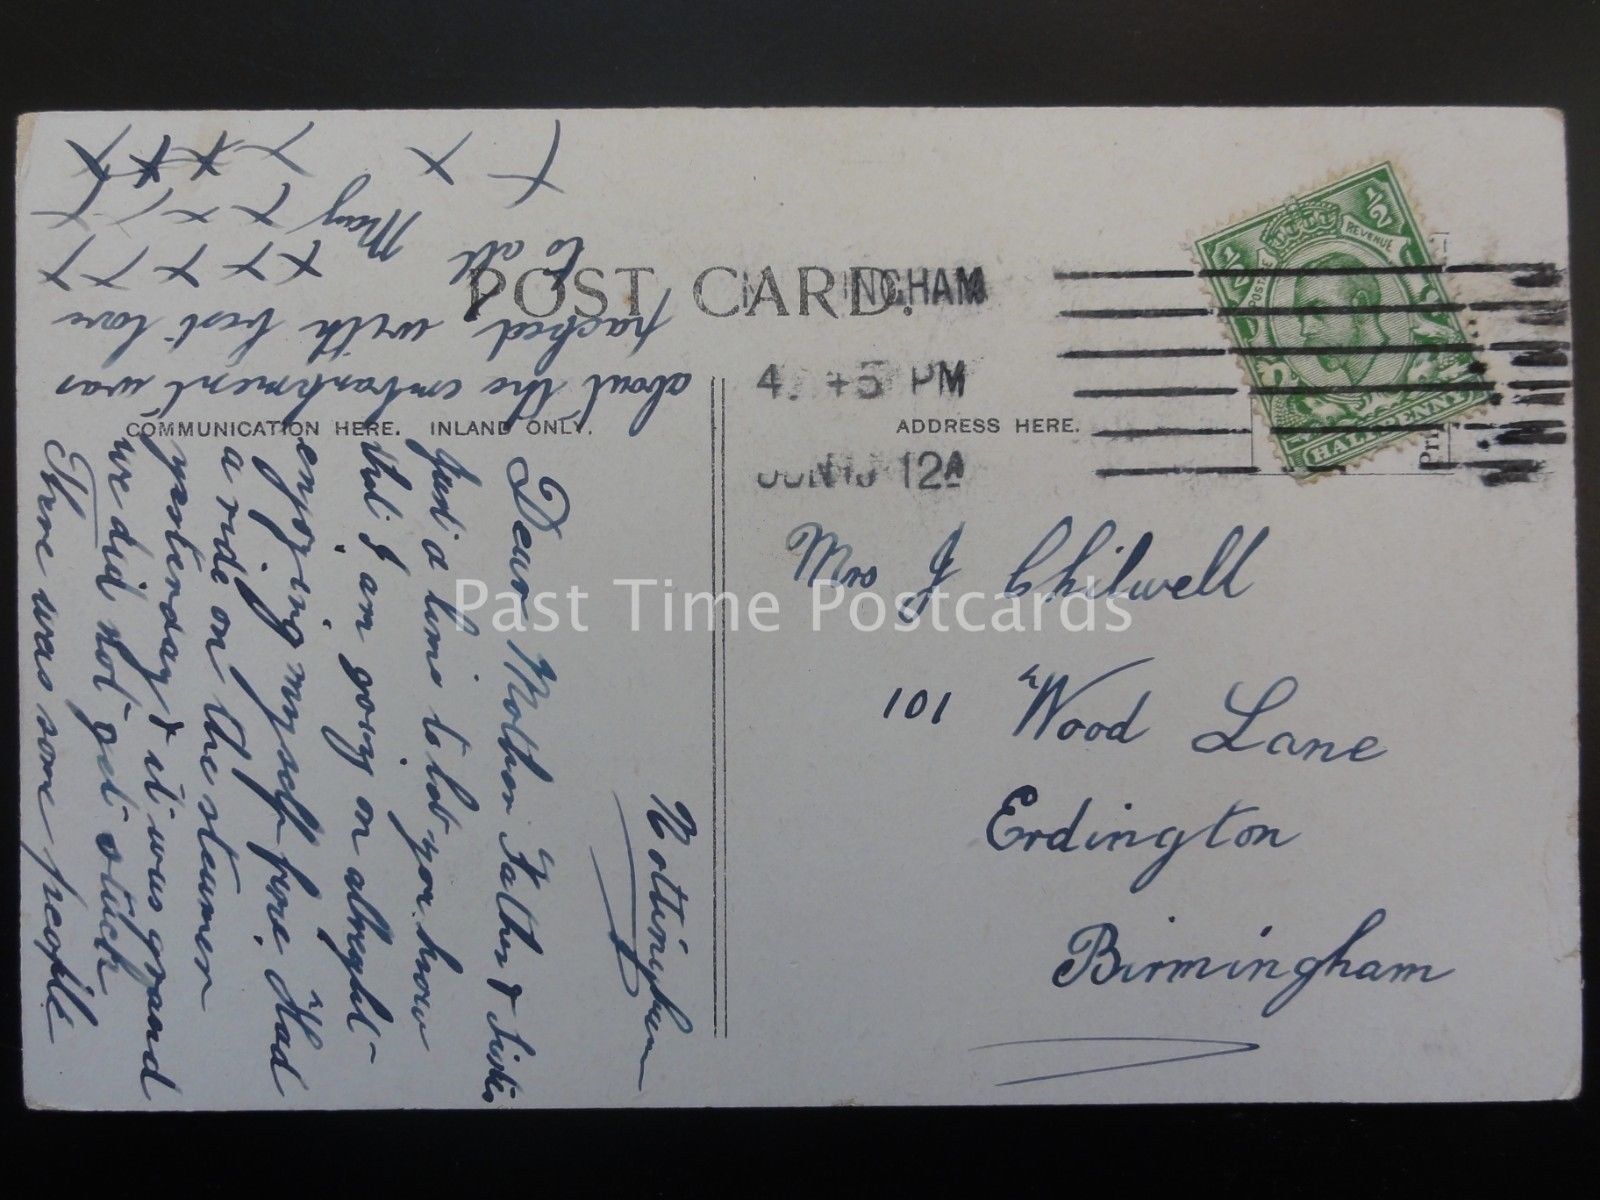 POST CARD.
INGHAM
4. +5 PM
JUN 12A
COMMUNICATION HERE. INLAND ONLY.
ADDRESS HERE.
POSTAGE
REVENUE
½
½
HALFPENNY
Pri
Nottingham
Dear Mother Father & Sister
Just a line to let you know
that I am going on alright
enjoying myself fine. Had
a ride on the steamer
yesterday & it was grand
we did not get stuck
There was some people
about the embankment was
packed with best love
to all
May
x x x x x x x
Mrs J Chilwell
101 Wood Lane
Erdington
Birmingham
Past Time Postcards